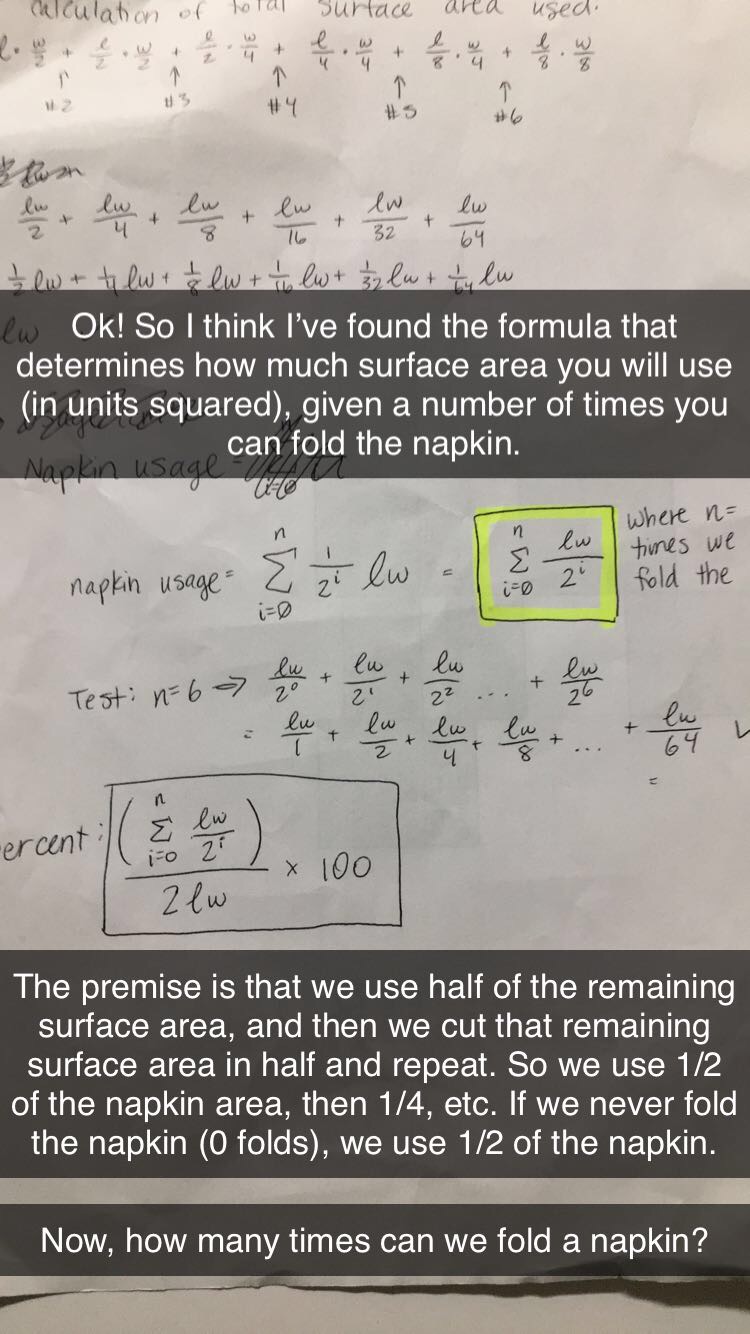 Calculation of total surface area used.
l · w/2 + l/2 · w/2 + l/2 · w/4 + l/4 · w/4 + l/8 · w/4 + l/8 · w/8
↑ ↑ ↑ ↑ ↑
#2 #3 #4 #5 #6
lw/2 + lw/4 + lw/8 + lw/16 + lw/32 + lw/64
1/2 lw + 1/4 lw + 1/8 lw + 1/16 lw + 1/32 lw + 1/64 lw
lw
Ok! So I think I’ve found the formula that
determines how much surface area you will use
(in units squared), given a number of times you
can fold the napkin.
Napkin usage =
i=0
napkin usage = n Σ i=0 1/2^i lw = n Σ i=0 lw/2^i
where n=
times we
fold the
Test: n=6 ⇒ lw/2^0 + lw/2^1 + lw/2^2 ... + lw/2^6
= lw/1 + lw/2 + lw/4 + lw/8 + ... + lw/64 ✓
=
ercent: (n Σ i=0 lw/2^i) / 2lw × 100
The premise is that we use half of the remaining
surface area, and then we cut that remaining
surface area in half and repeat. So we use 1/2
of the napkin area, then 1/4, etc. If we never fold
the napkin (0 folds), we use 1/2 of the napkin.
Now, how many times can we fold a napkin?